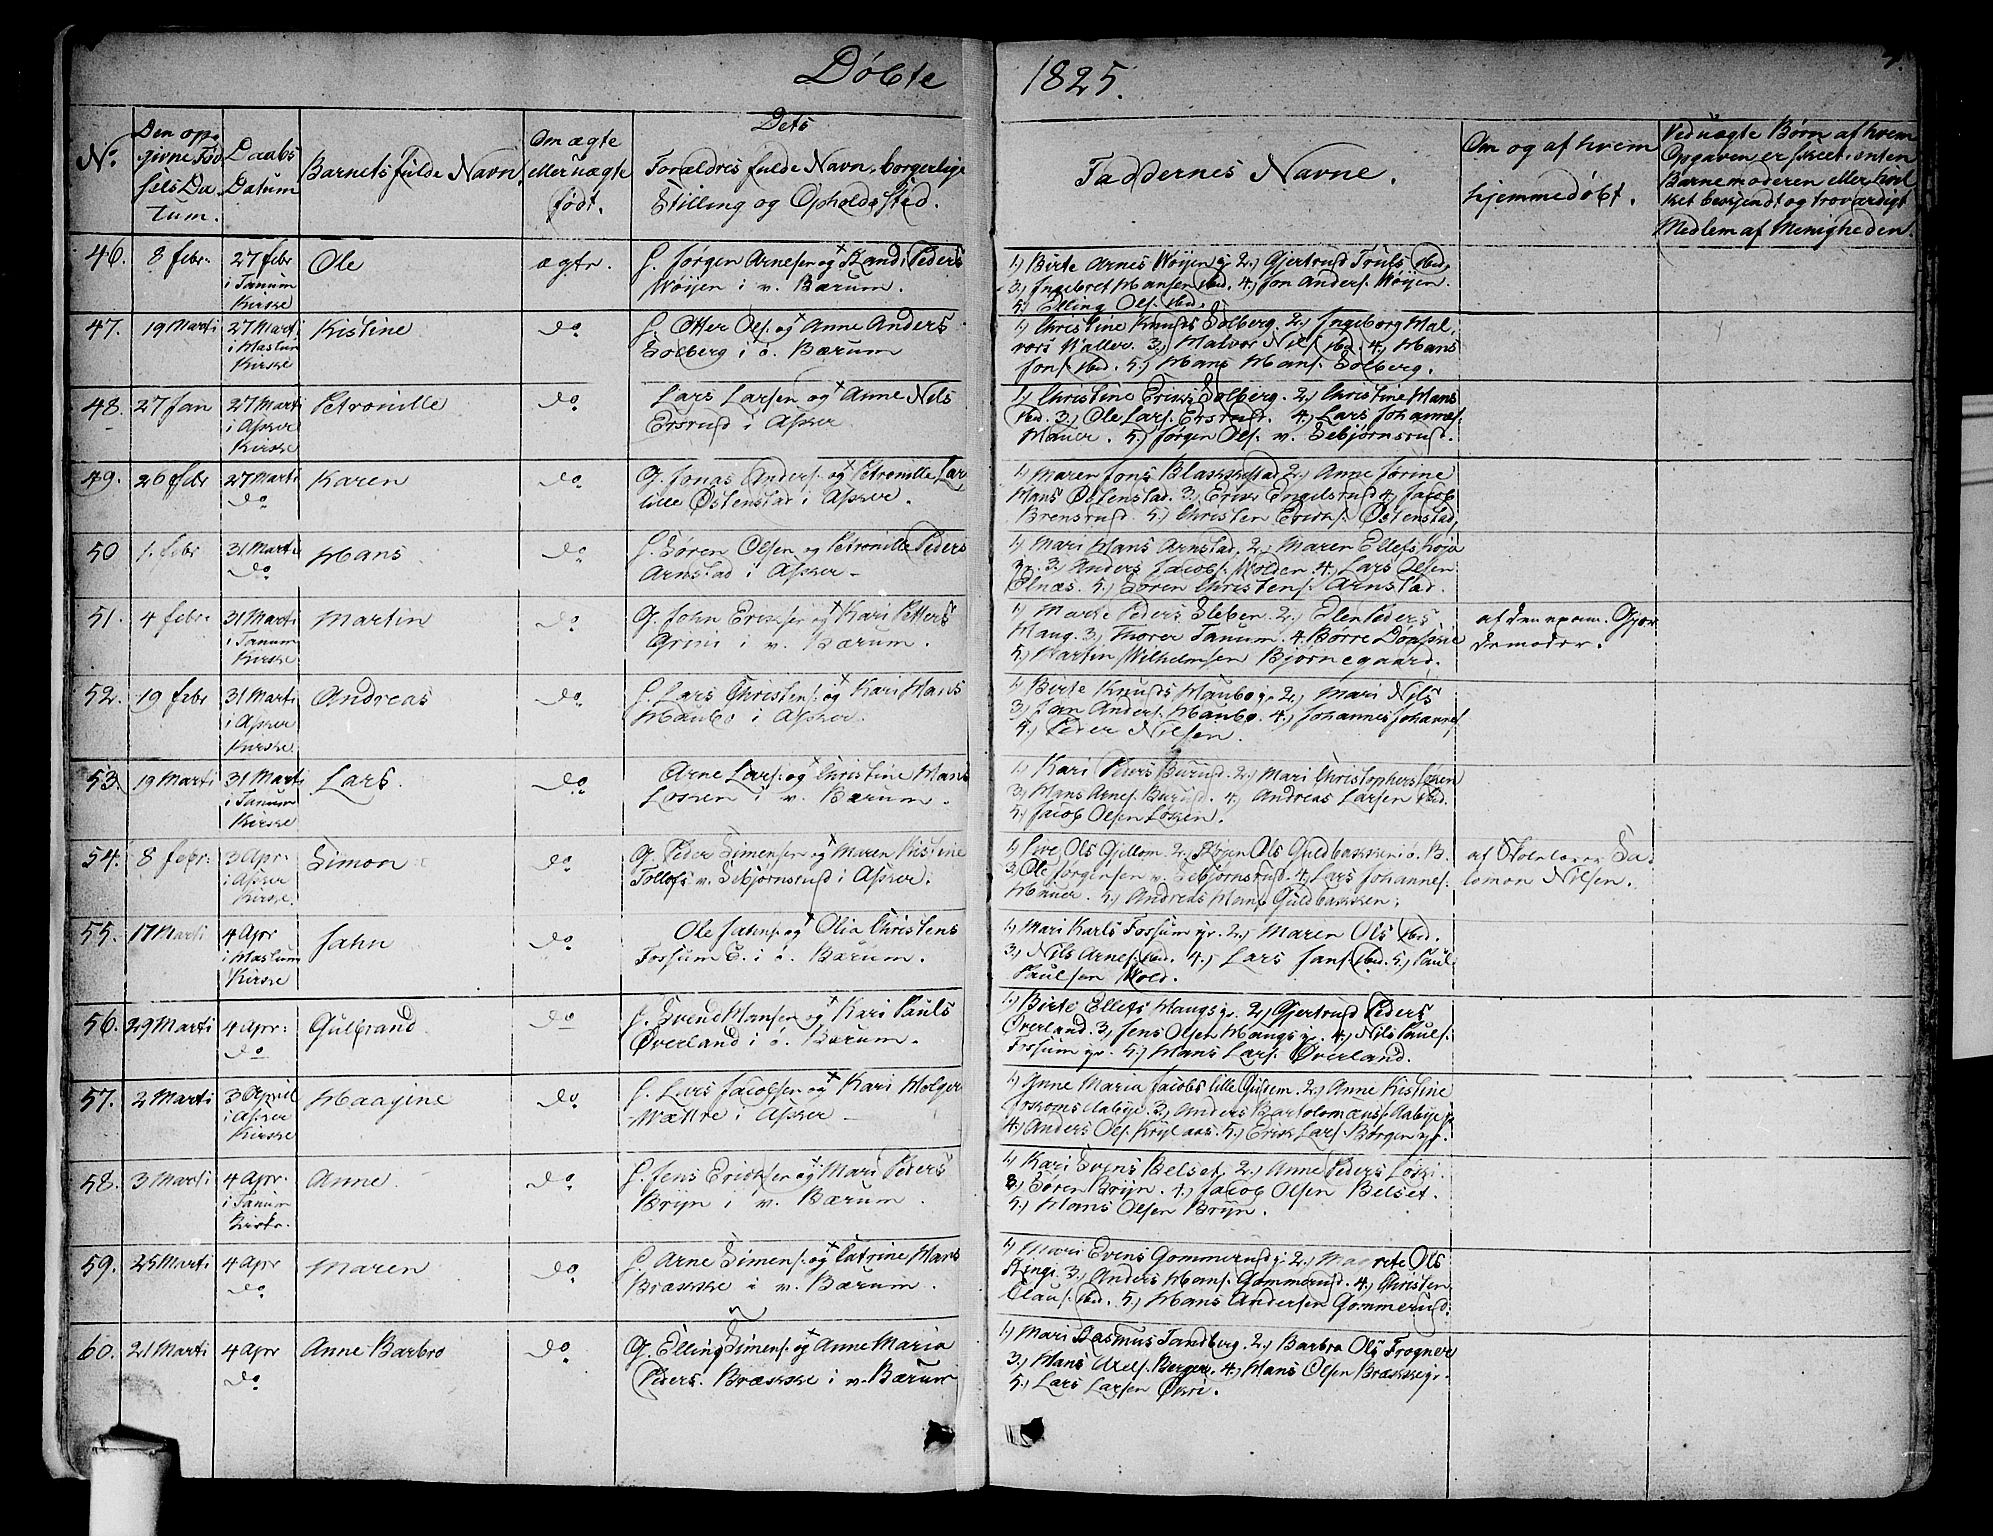 Døbte 1825.
7.
No.
Den op-
givne Fød
sels Da
tum.
Daabs
Datum
Barnets fulde Navn.
Om ægte
eller uægte
født.
Dets
Forældres fulde Navn, borgerlige
Stilling og Opholdssted.
Faddernes Navne.
Om og af hvem
hjemmedøbt.
Ved uægte Børn af hvem
Opgaven er skeet, enten
Barnemoderen eller hvil
ket bekjendt og troværdigt
Medlem af Menigheden.
46. 8 febr. 27 febr Ole ægte. G. Jørgen Arnesen og Randi Peders
i Tanum Wøijen i v. Bærum.
Kirke
1.) Birte Arnes Wøijen 2.) Gjertrud Truls ibid.
3.) Ingebret Hansen ibid. 4.) Jon Anders. Wøijen.
5.) Elling Ols. ibid.
47. 19 Marti 27 Marti Kistine do G. Otter Ols. og Anne Anders
i Haslum Solberg i ø. Bærum
Kirke
1.) Christine Knuds Solberg. 2.) Ingeborg Hal,
vors Haller. 3.) Halvor Nils. ibid. 4.) Hans
Jons. ibid. 5.) Hans Hans. Solberg.
48. 27 Jan 27 Marti Petronille do Lars Larsen og Anne Nils
i Asker Ersrud i Asker.
Kirke
1.) Christine Eriks Solberg. 2.) Christine Hans
ibid. 3.) Ole Lars. Ersrud. 4.) Lars Johannes.
Hauer. 5.) Jørgen Ols. v. Sebjørnsrud.
49. 26 febr 27 Marti Karen do G. Jonas Anders. og Petronille Lars
do lille Østenstad i Asker.
1.) Maren Jons Blakkestad 2.) Anne Jørine
Hans Østenstad. 3.) Erik Engelsrud 4.) Jacob
Brensrud. 5.) Christen Eriks. Østenstad.
50 1. febr 31 Marti Hans do G. Søren Olsen og Petronille Peders
do Arnstad i Asker
1.) Mari Hans Arnstad. 2.) Maren Ellefs Koja
3.) Anders Jacobs. Holden. 4.) Lars Olsen
Elnæs. 5.) Søren Christens. Arnstad.
51. 4 febr. 31 Marti Martin do G. John Eriksen og Kari Petters
i Tanum Grini i v. Bærum.
Kirke
1.) Marte Peders Sleben. 2.) Elen Peders
Haug. 3.) Thorer Tanum. 4. Børre
5.) Martin Wilhelmsen Bjørnegaard.
af den exam. Gjor
demoder.
52. 19 febr 31 Marti Andreas do G. Lars Christens. og Kari Hans
i Asker Haubo i Asker.
Kirke
1.) Birte Knuds Haubo 2.) Mari Nils
3.) Jan Anders. Haubo. 4.) Johannes Johannes.
5.) Peder Nilsen.
53. 19 Marti 31 Marti Lars. do Arne Lars. og Christine Hans
i Tanum Løkken i v. Bærum.
Kirke
1.) Kari Peders Burud. 2.) Mari Christophers Løken
3.) Hans Arnes. Burud. 4.) Andreas Larsen ibid.
5.) Jacob Olsen Løkken.
54. 8 febr. 3 Apr. Simon do G. Peder Simensen og Maren Kistine
i Asker Tollofs v. Sebjørnsrud i Asker.
Kirke.
1.) Live Ols Gjellom. 2.) Ols Guldbakken i ø. B.
3.) Ole Jørgensen v. Sebjørnsrud. 4.) Lars Johannes.
Hauer. 5.) Andreas Hans. Guldbakken.
af Skolelærer Sa-
lomon Nilsen.
55. 17 Marti 4 Apr Jahn do Ole Jahns. og Olia Christens
i Haslum Fossum E. i ø. Bærum.
Kirke
1.) Mari Karls Fossum gr. 2.) Maren Ols ibid.
3.) Nils Arnes. ibid. 4.) Lars Jans. ibid. 5.) Paul
Paulsen Wold.
56. 29 Marti 4 Apr: Gulbrand do G. Svend Hansen og Kari Pauls
do Øverland i ø. Bærum.
1.) Birte Ellefs Haugs 2.) Gjertrud Peders
Øverland. 3.) Jens Olsen Haugs 4.) Nils Pauls.
Fossum gr. 5.) Hans Lars. Øverland.
57. 2 Marti 3 April Haagine do G. Lars Jacobsen og Kari Holger
i Asker Wættre i Asker
Kirke
1.) Anne Maria Jacobs lille Gusem. 2.) Anne Kistine
Aabye. 3.) Anders Bartolomæus. Aabye
4.) Anders Ols. 5.) Erik Lars. Børgen
58. 3 Marti 4 Apr. Anne do G. Jens Eriksen og Mari Peders
i Tanum Bryn i v. Bærum.
Kirke.
1.) Kari Svens Belset. 2.) Anne Peders Løkki.
3.) Søren Bryn. 4.) Jacob Olsen Belset.
5.) Hans Olsen Bryn.
59. 25 Marti 4 Apr Maren do G. Arne Simens. og Catrine Hans
do Brække i v. Bærum.
1.) Mari Evens Gommerud 2.) Magrete Ols
Ringi. 3.) Anders Hans. Gommerud. 4.) Christen
Claus. ibid. 5.) Hans Andersen Gommerud.
60. 21 Marti 4 Apr Anne Barbro do G. Elling Simens. og Anne Maria
do Peders. Brække i v. Bærum
1.) Mari Rasmus Tandberg. 2.) Barbra Ols Frogner
3.) Hans Axels. Berger. 4.) Hans Olsen Brække
5.) Lars Larsen Økri.